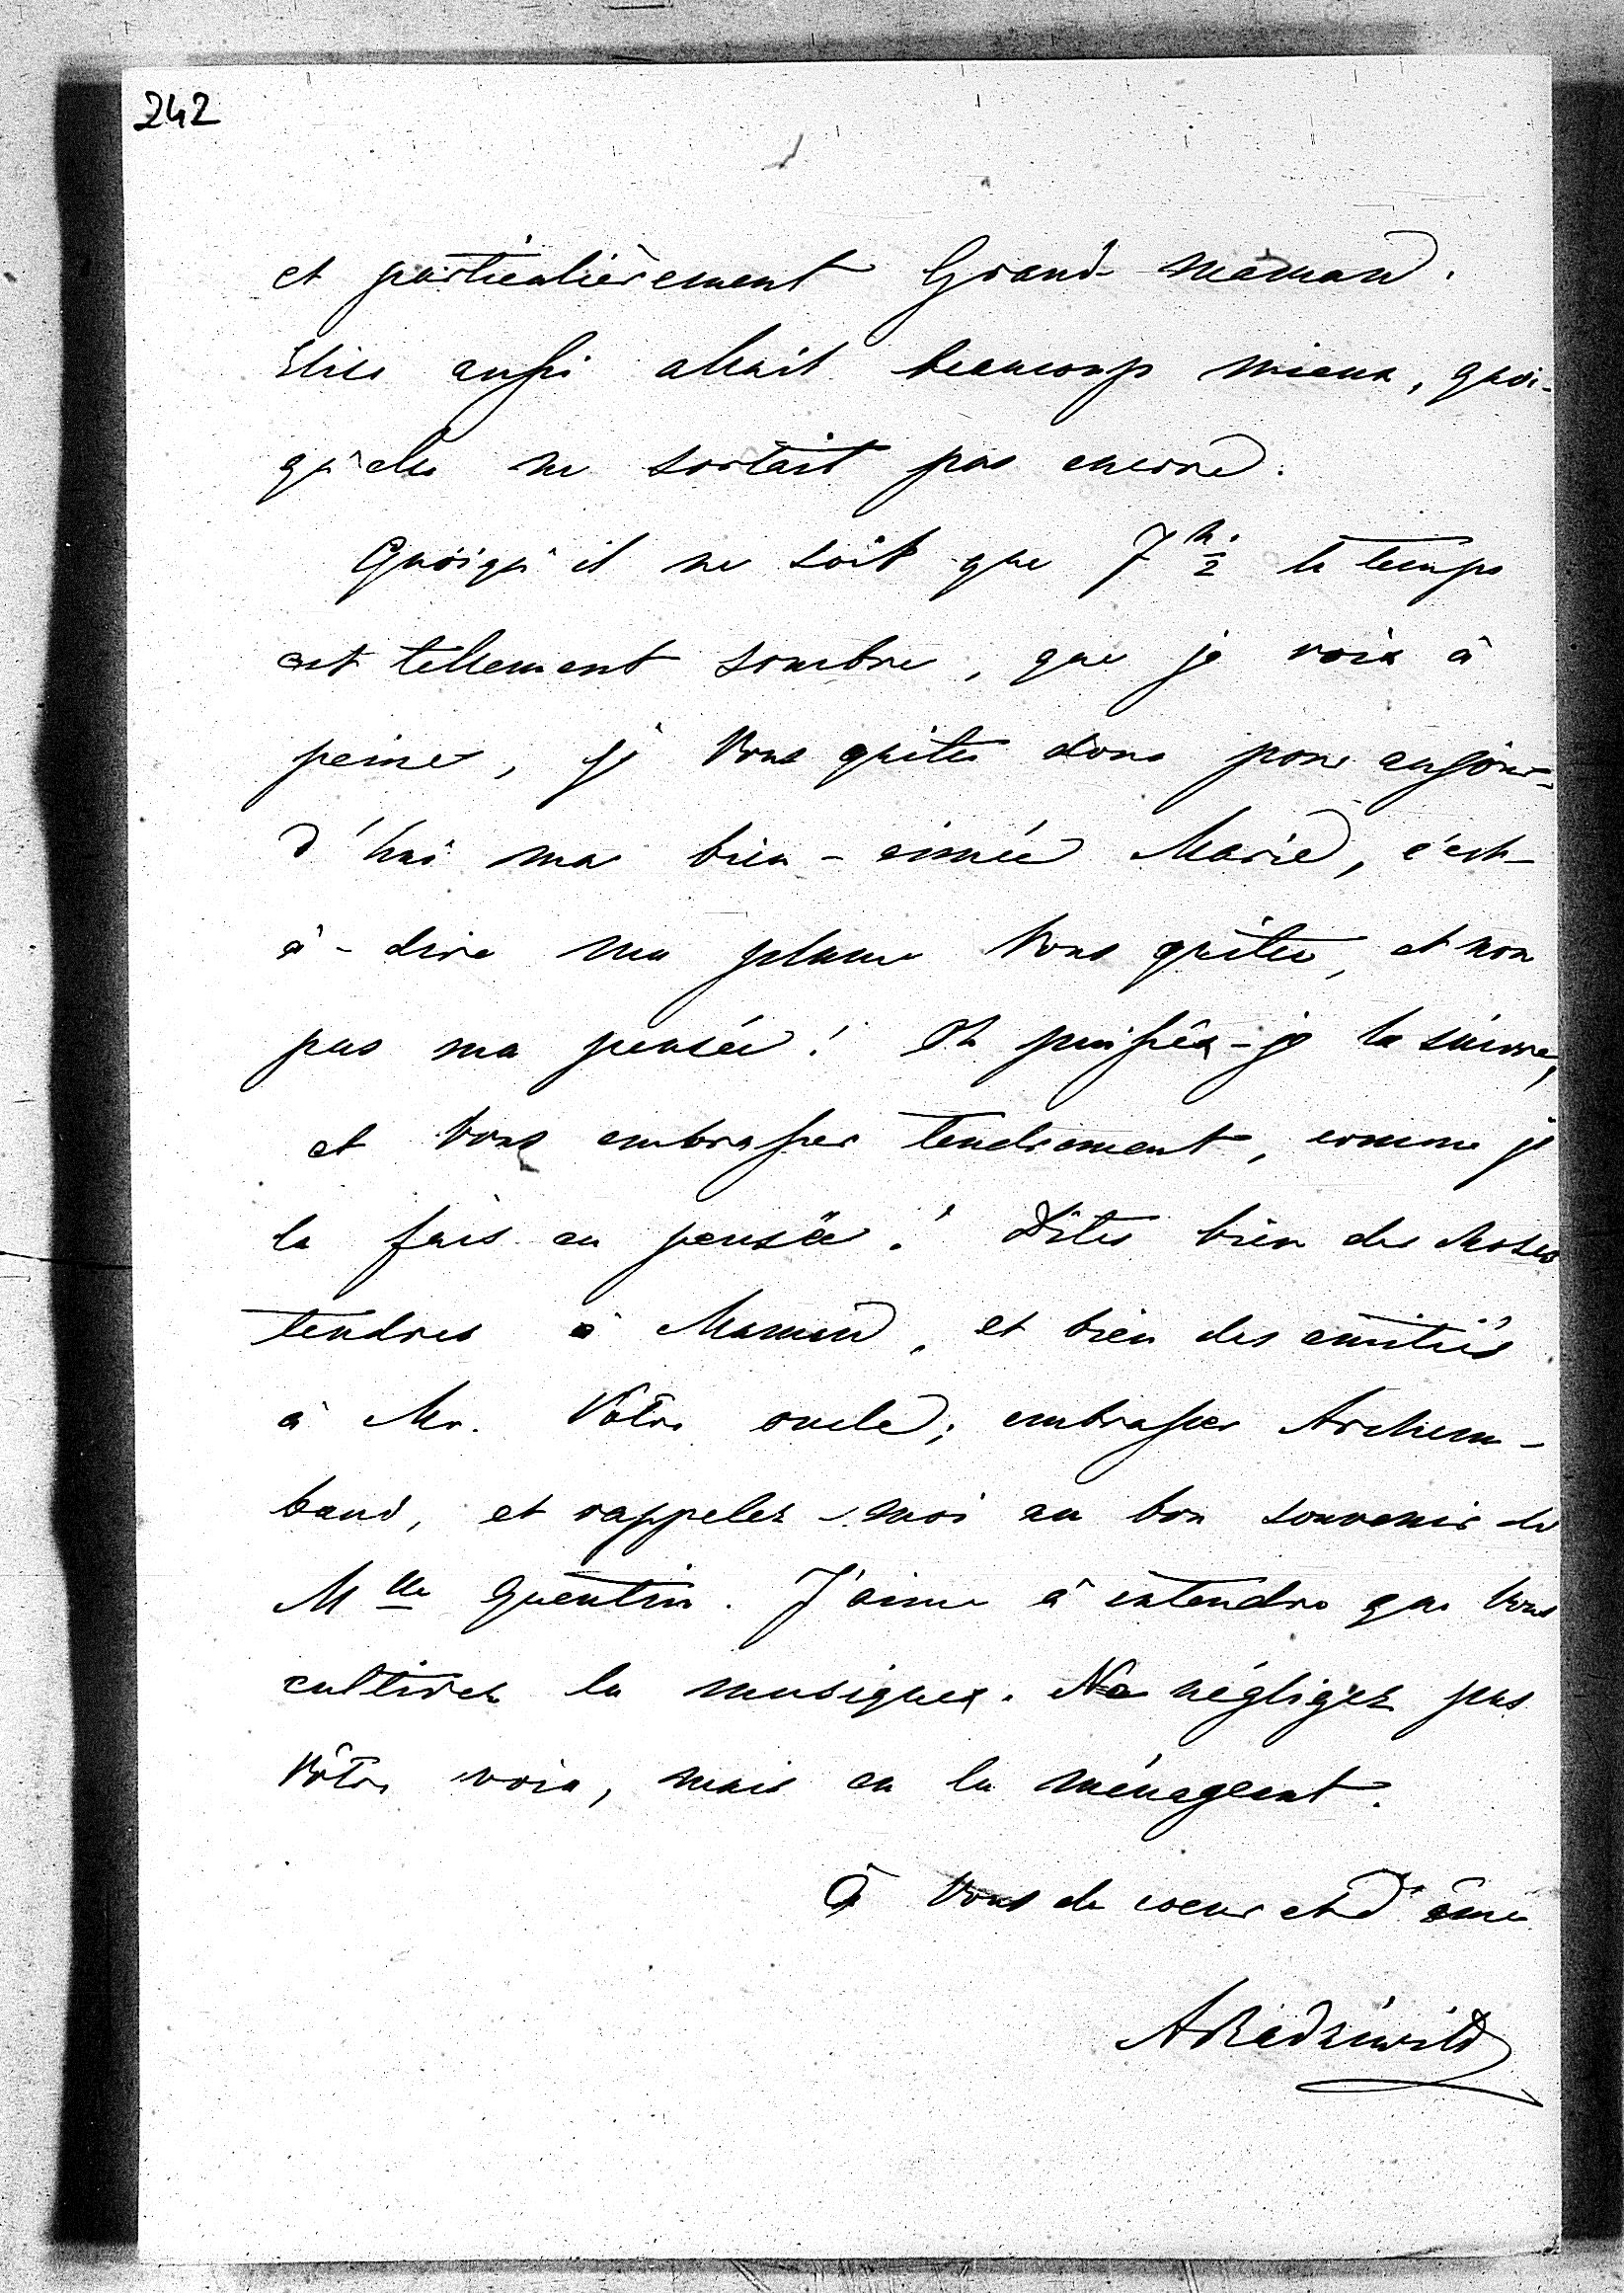 242
et particulièrement Grand-maman.
Elise aussi allait beaucoup mieux, quoi-
qu'elle ne sortait pas encore.
Quoiqu'il ne soit que 7 h. 1/2 le temps
est tellement sombre, que je vois à
peine, je Vous quite donc pour aujour-
d'hui ma bien-aimée Marie, c'est-
à-dire ma plume Vous quite, et non
pas ma pensée! Oh puissèz-je la suivre,
et Vous embrasser tendrement, comme je
le fais en pensée! Dites bien des choses
tendres à Maman, et bien des amitiés
à Mr. Vôtre oncle; embrassez Archam-
baud, et rappelez-moi au bon souvenir de
Mlle Quentin. J'aime à entendre que Vous
cultivez la musique. Ne négligez pas
Vôtre voix, mais en la ménageant.
À Vous de coeur et d'âme
ARadziwill